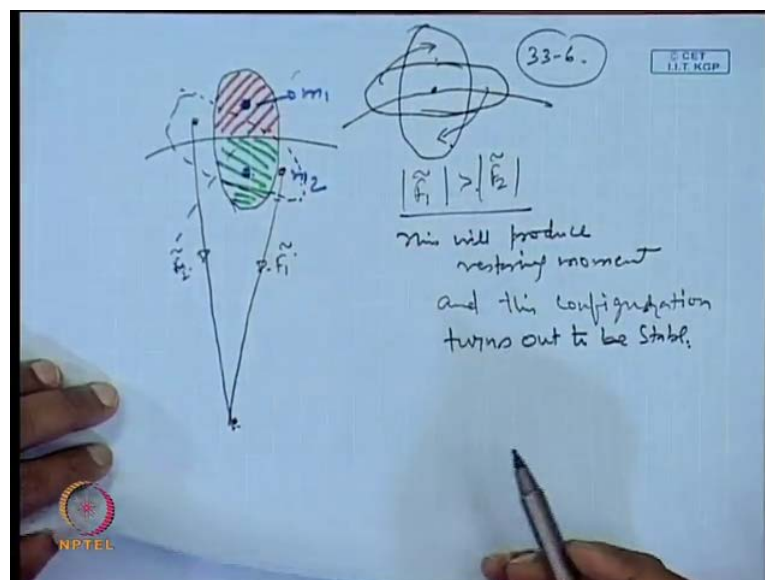 33-6.
© CET
I.I.T. KGP
m1
m2
|F̃1| > |F̃2|
F̃2
F̃1
This will produce
restoring moment
and this configuration
turns out to be Stabl.
NPTEL